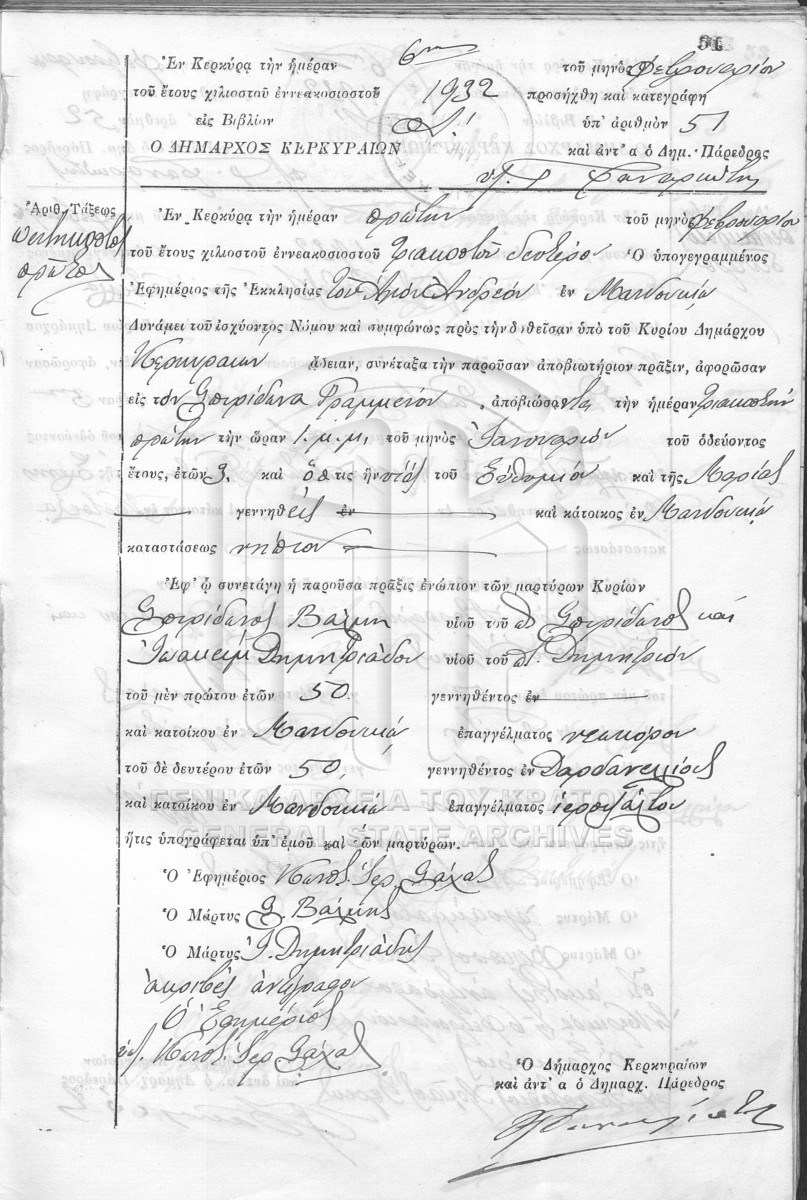 51
Ἐν Κερκύρᾳ τὴν ἡμέραν 6ην τοῦ μηνὸς Φεβρουαρίου
τοῦ ἔτους χιλιοστοῦ ἐννεακοσιοστοῦ 1932 προσήχθη καὶ κατεγράφη
εἰς Βιβλίον ὑπ' ἀριθμὸν 51
Ο ΔΗΜΑΡΧΟΣ ΚΕΡΚΥΡΑΙΩΝ καὶ ἀντ' α ὁ Δημ. Πάρεδρος
Ἀριθ. Τάξεως
πεντηκοστὸς
πρῶτος
Ἐν Κερκύρᾳ τὴν ἡμέραν πρώτην τοῦ μηνὸς Φεβρουαρίου
τοῦ ἔτους χιλιοστοῦ ἐννεακοσιοστοῦ τριακοστοῦ δευτέρου Ὁ ὑπογεγραμμένος
Ἐφημέριος τῆς Ἐκκλησίας τοῦ Ἁγίου Ἀνδρέου ἐν Μανδουκίῳ
Δυνάμει τοῦ ἰσχύοντος Νόμου καὶ συμφώνως πρὸς τὴν δοθεῖσαν ὑπὸ τοῦ Κυρίου Δημάρχου
Κερκυραίων ἄδειαν, συνέταξα τὴν παροῦσαν ἀποβιωτήριον πρᾶξιν, ἀφορῶσαν
εἰς τὸν Σπυρίδωνα Γραμμένον ἀποβιώσαντα τὴν ἡμέραν τριακοστὴν
πρώτην τὴν ὥραν 1. μ.μ. τοῦ μηνὸς Ἰανουαρίου τοῦ ὁδεύοντος
ἔτους, ἐτῶν 3. καὶ ὅστις ἦν υἱὸς τοῦ Εὐθυμίου καὶ τῆς Μαρίας
γεννηθεὶς ἐν καὶ κάτοικος ἐν Μανδουκίῳ
καταστάσεως νήπιον
Ἐφ' ᾧ συνετάγη ἡ παροῦσα πρᾶξις ἐνώπιον τῶν μαρτύρων Κυρίων
Σπυρίδωνος Βάλμη υἱοῦ τοῦ π. Σπυρίδωνος καὶ
Ἰωακεὶμ Δημητριάδου υἱοῦ τοῦ π. Δημητρίου
τοῦ μὲν πρώτου ἐτῶν 50. γεννηθέντος ἐν
καὶ κατοίκου ἐν Μανδουκίῳ ἐπαγγέλματος νεωκόρου
τοῦ δὲ δευτέρου ἐτῶν 50, γεννηθέντος ἐν Δαρδανελίοις
καὶ κατοίκου ἐν Μανδουκίῳ ἐπαγγέλματος ἱεροψάλτου
ΓΕΝΙΚΑ ΑΡΧΕΙΑ ΤΟΥ ΚΡΑΤΟΥΣ
GENERAL STATE ARCHIVES
ἥτις ὑπογράφεται ὑπ' ἐμοῦ καὶ τῶν μαρτύρων.
Ὁ Ἐφημέριος Κωνστ. Ἱερ.
Ὁ Μάρτυς Σ. Βάλμης
Ὁ Μάρτυς Ἰ. Δημητριάδης
ἀκριβὲς ἀντίγραφον
Ὁ Ἐφημέριος
Κωνστ. Ἱερ.
Ὁ Δήμαρχος Κερκυραίων
καὶ ἀντ' α ὁ Δημαρχ. Πάρεδρος